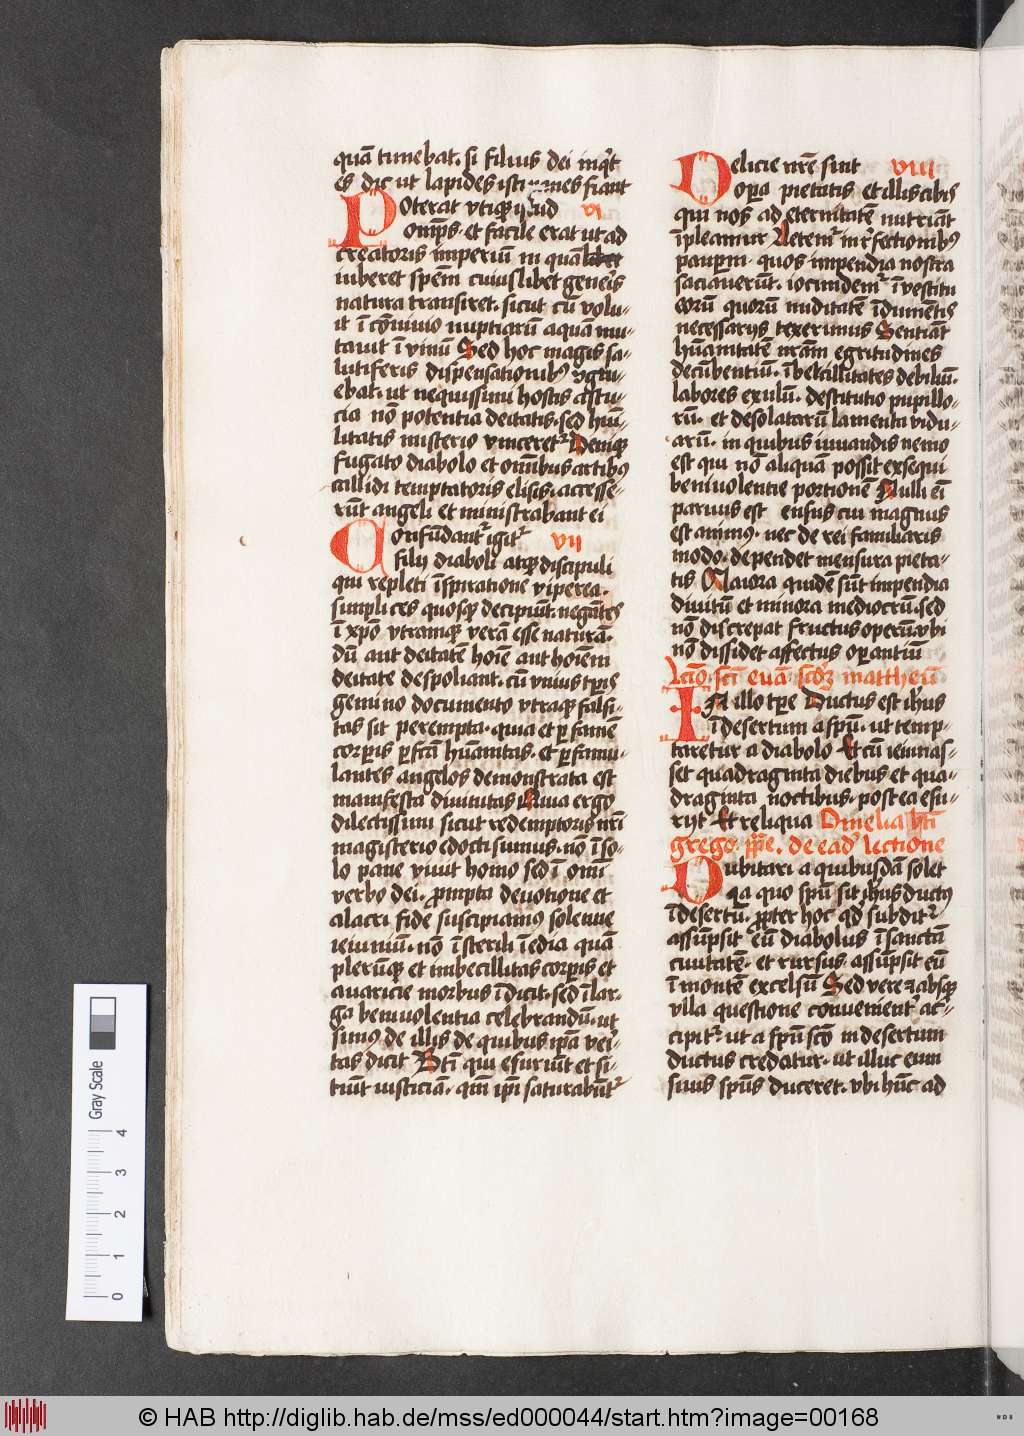 quā timebat. si filius dei inq̇t
es dic ut lapides isti panes fiant
Poterat vtiqꝫ id vi
omīps. et facile erat ut ad
creatoris imperiū in quā
iuberet spēm cuiuslibet genēis
natura transiret. sicut cū volu-
it ī cōuiuio nuptiarū aqua mu-
tauit ī vinū Sed hoc magis sa-
lutiferis dispensationibꝰ ɔgru-
ebat. ut nequissimi hostis astu-
cia nō potentia deitatis. sed hūi-
litatis misterio vinceretᷣ Deniqꝫ
fugato diabolo et omībus artibꝰ
callidi temptatoris elisis. accesse-
rūt angeli et ministrabant ei
Confūdantᷣ igitᷣ vii
filij diaboli atqꝫ discipuli
qui repleti īspiratione viperea.
simplices quosqꝫ decipiūt. negātes
ī xp̄o vtramqꝫ verā esse naturā.
dū aut deitatē hoīe aut hoīem
deitate despoliant. cū vnius tꝑis
gemino documento vtraqꝫ falsi-
tas sit perempta. quia et ꝑ famē
corꝑis ꝑfcā hūanitas. et ꝑ famu-
lantes angelos demonstrata est
manifesta diuinitas Quia ergo
dilectissimi sicut redemptoris nr̄i
magisterio edocti sumus. nō ī so-
lo pane viuit homo sed ī omī
verbo dei. ꝓmpta deuotione et
alacri fide suscipiamꝰ solenne
ieiuniū. nō ī sterili īedia quā
plerūqꝫ et imbecillitas corꝑis et
auaricie morbus īdicit. sed ī lar-
ga beniuolentia celebrandū. ut
simus de illis de quibus ip̄a vei-
tas dicit Btī qui esuriūt et si-
tiūt iusticiā. qm̄ ip̄i saturabūtᷣ
Delicie nr̄e sint viii
opera pietatis et illis cibis
qui nos ad eternitatē nutriāt
īpleamur Letemᷣ in rᷓfectionibꝰ
pauꝑum. quos impendia nostra
saciauerūt. iocundemᷣ ī vestitu
eorū quorū nuditatē īdumētis
necessarijs texerimus Sentiāt
hūanitatē nr̄am egritudines
decūbentiū. ībecillitates debiliū.
labores exulū. destitutio pupillo-
rū. et desolatarū lamenta vidu-
arū. in quibus iuuandis nemo
est qui nō aliquā possit exsequi
beniuolentie portionē Nulli eī
paruus est ensus cui magnus
est animus. nec de rei familiaris
modo. dependet mensura pieta-
tis Maiora quidē sūt impendia
diuitū et minora mediocrū. sed
nō discrepat fructus operū. vbi
nō dissidet affectus oꝑantiū
Lcīo. scī euā. scd̄ꝫ mattheū
In illo tꝑe Ductus est ih̄us
ī desertum a spū. ut temp-
taretur a diabolo Et cū ieiunas-
set quadraginta diebus et qua-
draginta noctibus. postea esu-
rijt Et reliqua Omelia btī
grego. ꝑꝑe. de eadē lectione
Dubitari a quibusdā solet
a quo spū sit ih̄us ductꝰ
ī desertū. ꝓpter hoc qd̄ subditᷣ
assūpsit eū diabolus ī sanctā
ciuitatē. et rursus assūpsit eū
ī montē excelsū Sed vere ⁊ absqꝫ
vlla questione conuenientᷣ ac-
cipitᷣ ut a spū scō in desertum
ductus credatur. ut illuc eum
suus sp̄us duceret. vbi hūc ad
0 1 2 3 4
Gray Scale
© HAB http://diglib.hab.de/mss/ed000044/start.htm?image=00168